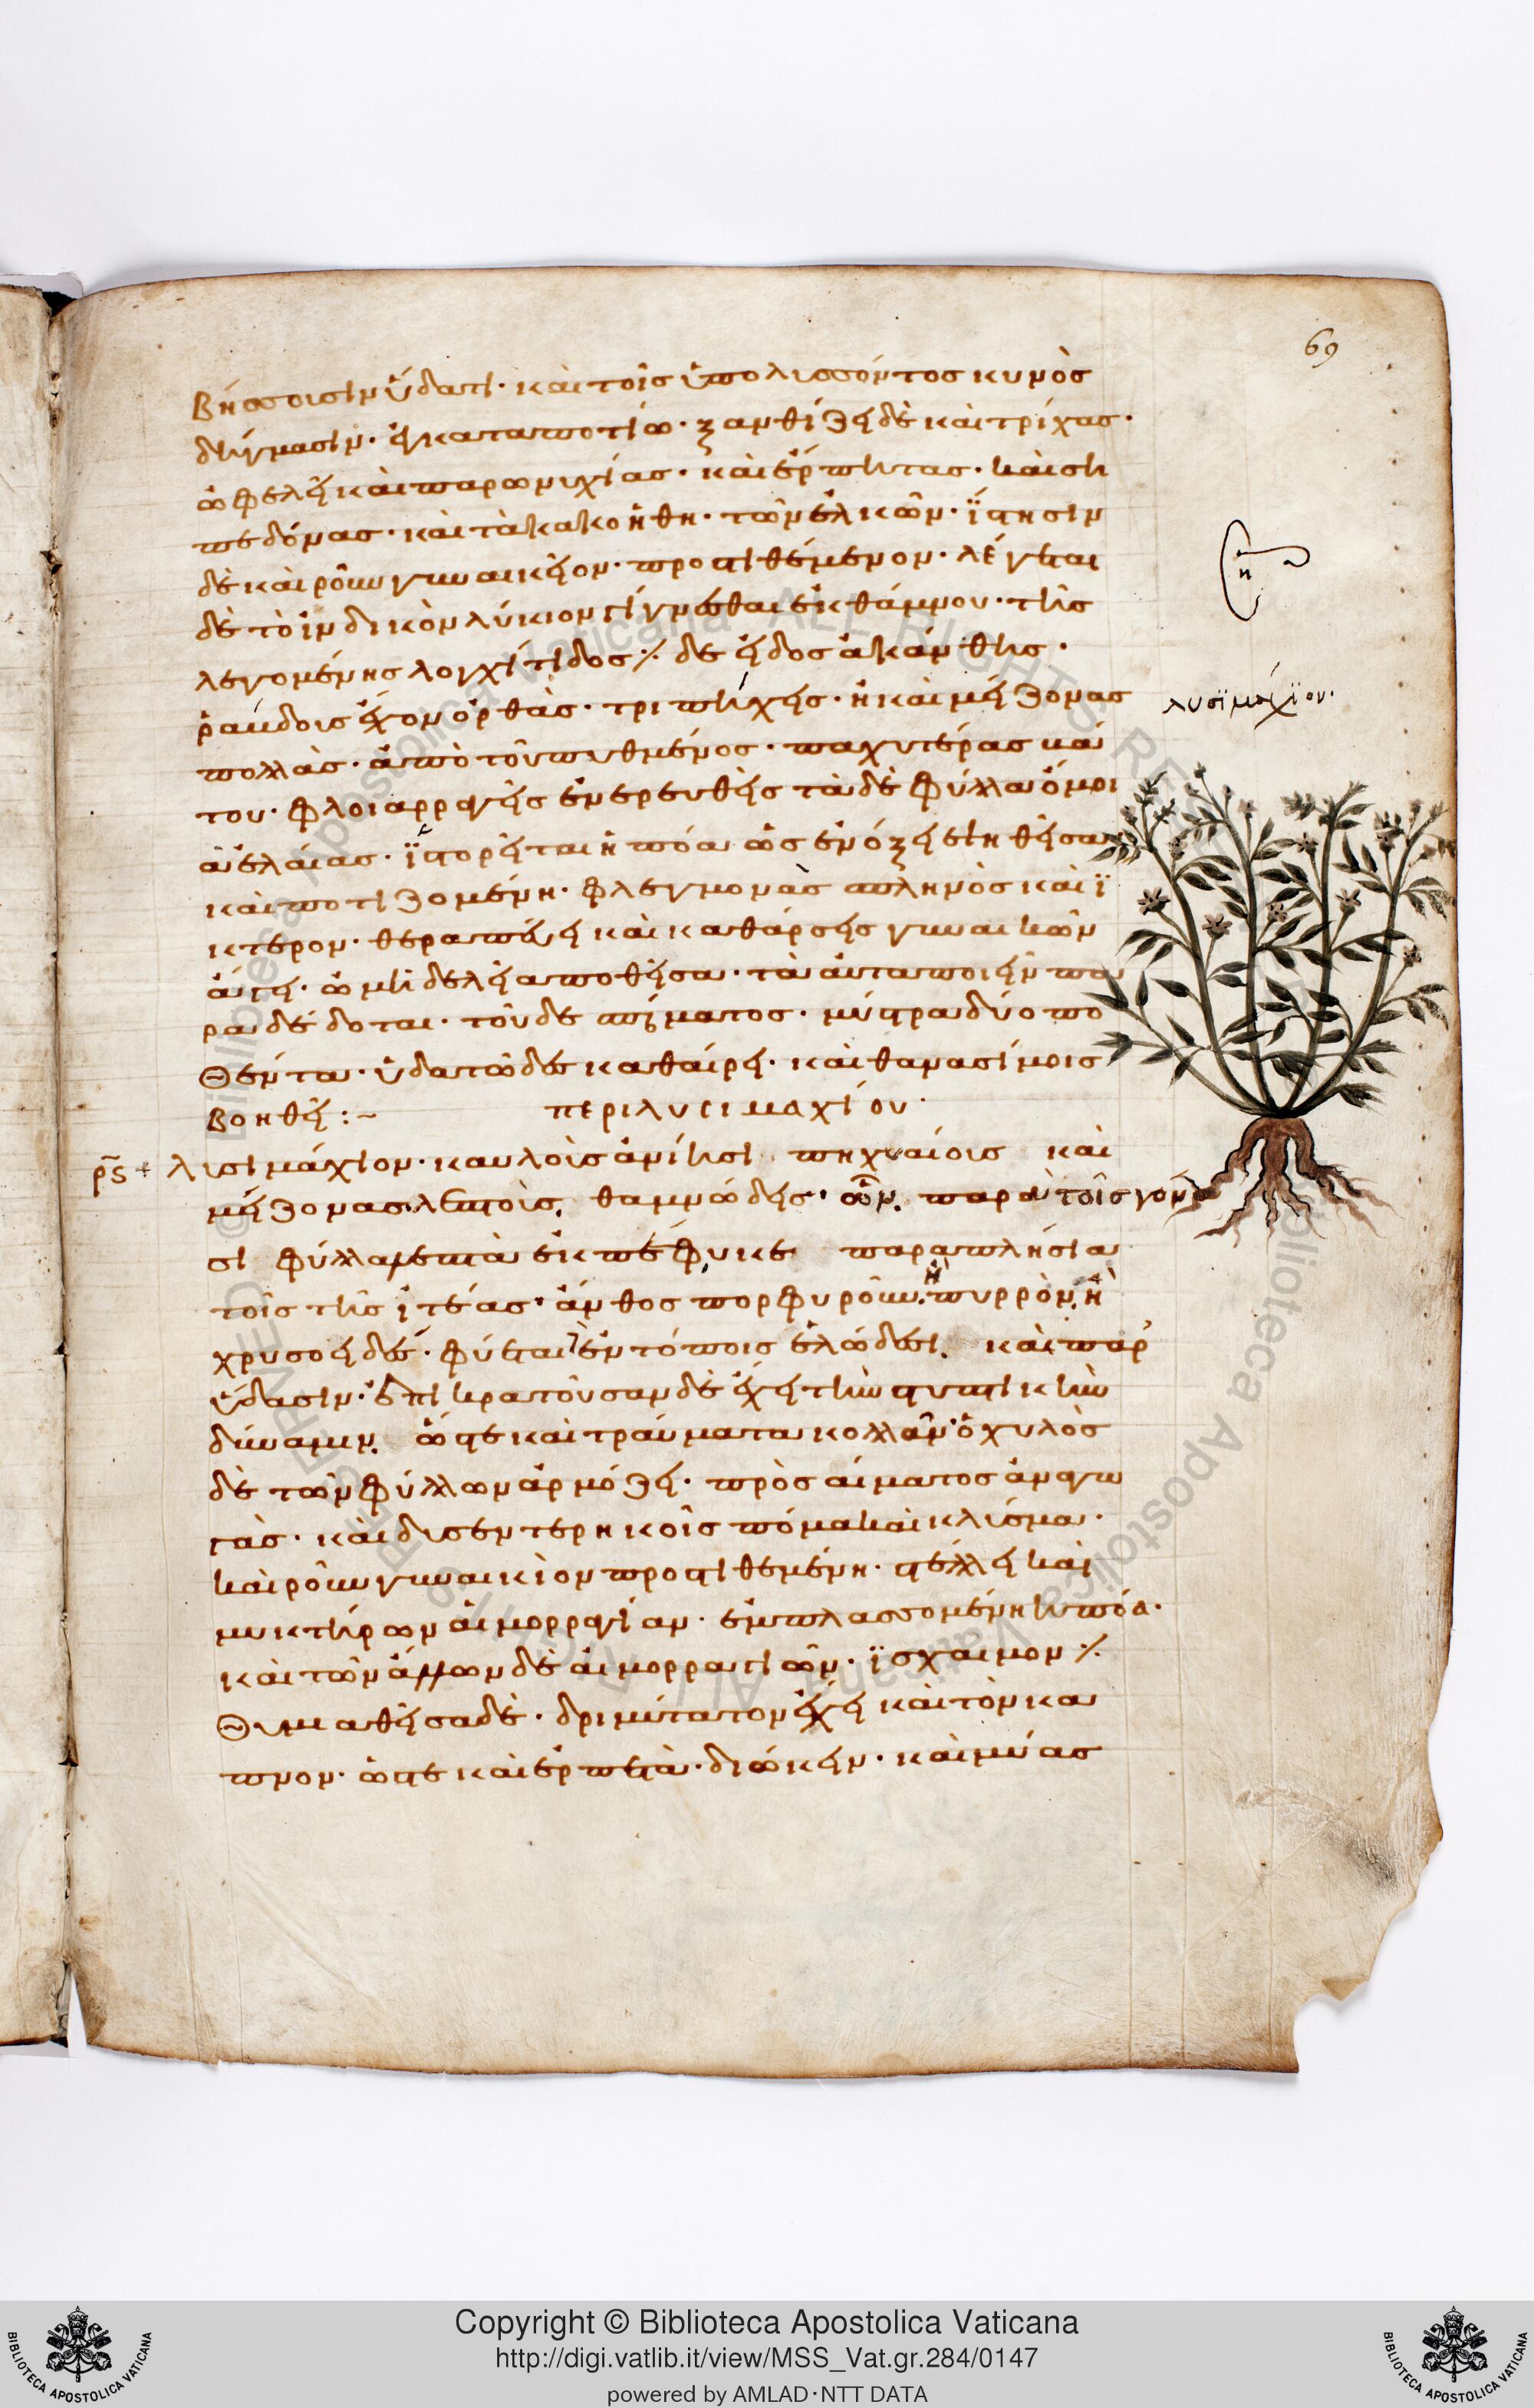 69
βήσσουσιν ὕδατι· καὶ τοῖς ὑπὸ λυσσόντος κυνὸς
δήγμασιν· ἢ καταποτίω· ξανθίζει δὲ καὶ τρίχας·
ὠφελεῖ καὶ παρωνυχίας· καὶ ἕρπητας· καὶ ση
πεδόνας· καὶ τὰ κακοήθη· τῶν ἑλκῶν· ἵστησιν
δὲ καὶ ῥοῦν γυναικεῖον· προστιθέμενον· λέγεται
δὲ τὸ ἰνδικὸν λύκιον γίγνεσθαι ἐκ θάμνου· τῆς
λεγομένης λογχίτιδος ⁒ δε εἶδος ἀκάνθης·
ῥάμδοις ἔχον ὀρθὰς· τριπήχεις· ἢ καὶ μείζονας
πολλὰς· ἀπὸ τοῦ πυθμένος· παχυτέρας κά
του· φλοιαρραγεὶς ἐνερευθὴς τὰ δὲ φύλλα ὅμοι
α ἐλαίας· ἱστορεῖται ἡ πόα ὡς ἐν ὄξει ἑψηθεῖσα
καὶ ποτιζομένη· φλεγμονὰς σπληνὸς καὶ ἴ
κτερον· θεραπεύει καὶ καθάρσεις γυναικῶν
ἄγει· ὠμὴ δὲ λεῖα ποθεῖσα· τὰ αὐτὰ ποιεῖν πα
ραδέδοται· τοῦ δὲ σπέρματος· μύστρα δύο πο
θέντα· ὑδατώδες καθαίρει· καὶ θανασίμοις
βοηθεῖ :~ περὶ λυσιμαχίου·
λυσϊμαχϊον·
ρ̅ς + λισιμάχιον· καυλοὺς ἀνίησι πηχυαίους καὶ
μείζονας λεπτοὺς, θαμνώδεις· ὧν παρὰ τοῖς γόνα
σι φύλλα λεπτὰ ἐκπέφυκε παραπλήσια
τοῖς τῆς ἰτέας· ἄνθος πορφυροῦν, ἢ πυρρὸν, ἢ
χρυσοειδές· φύεται ἐν τόποις ἑλώδεσι, καὶ παρ'
ὕδασιν· ἐπικρατοῦσαν δὲ ἔχει τὴν στυπτικὴν
δύναμιν, ὥστε καὶ τραύματα κολλᾶν· ὁ χυλὸς
δὲ τῶν φύλλων ἁρμόζει· πρὸς αἵματος ἀναγω
γὰς· καὶ δυσεντερηκοῖς πόμα καὶ κλίσμα·
καὶ ῥοῦν γυναικὶον προστιθεμένη· στέλλει καὶ
μυκτήρων αἱμορραγίαν· ἐμπλασσομένη ἡ πόα·
καὶ τῶν ἄλλων δὲ αἱμορραγιῶν· ἴσχαιμον ⁒
θυμιαθεῖσα δὲ· δριμύτατον ἔχει καὶ τὸν κα
πνον· ὥστε καὶ ἑρπετὰ· διώκειν· καὶ μυίας
BIBLIOTECA APOSTOLICA VATICANA
Copyright © Biblioteca Apostolica Vaticana
http://digi.vatlib.it/view/MSS_Vat.gr.284/0147
powered by AMLAD·NTT DATA
BIBLIOTECA APOSTOLICA VATICANA